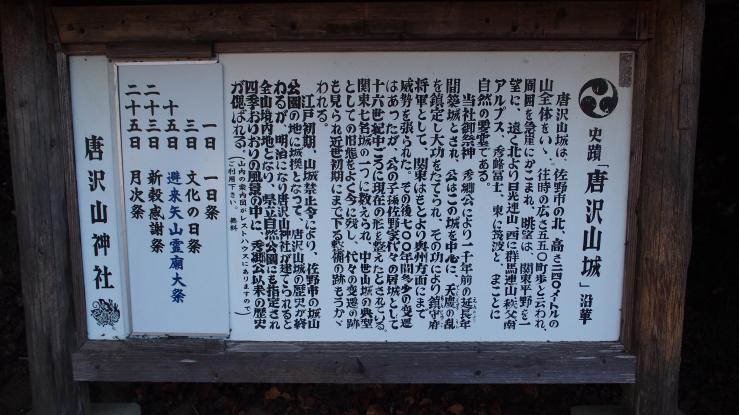 史蹟「唐沢山城」沿革
唐沢山城は、佐野市の北、高さ二四〇メートルの
山全体をいゝ、往時の広さ五五〇町歩と云われ、
周囲を急崖にかこまれ、眺望は、関東平野を一
望に、遠く北より日光連山、西に群馬連山、秩父南
アルプス、秀峰富士、東に筑波と、まことに
自然の要害である。
当社御祭神 秀郷公により一千年前の延長年
間築城とされ、公はこの城を中心に、天慶の乱
を鎮定し大功をたてられ、その功により鎮守府
将軍として、関東はもとより奥州方面にまで
威勢を張られた。その後七〇〇年間多少の変遷
はあったが、公の子孫佐野家代々の居城として
十六世紀中ころに現在の形を整えたとされている。
関東七名城の一つに数えられ、中世山城の典型
としての形態をよく今に残し、代々の変遷の跡
も見られ近世初期にまで下る戦禍の跡もうかゞ
われる。
江戸初期、山城禁止令により、佐野市の城山
公園の地に城換となって、唐沢山城の歴史が終
わるが、明治になり唐沢山神社が建てられると
全山境内地となり、県立自然公園にも指定され
四季おりおりの風景の中に、秀郷公以来の歴史
が偲ばれる。
(山内の案内図がレストハウスにありますので
ご利用下さい。無料)
一日 一日祭
三日 文化の日祭
十五日 避来矢山霊廟大祭
二十三日 新穀感謝祭
二十五日 月次祭
唐沢山神社